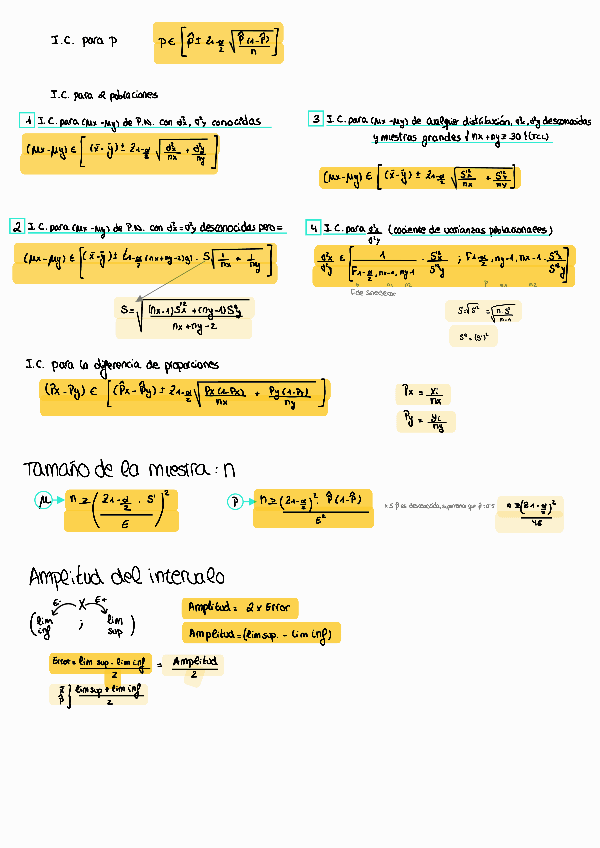 I.C. para p
p ∈ [p̂ ± z1-α/2 √(p̂(1-p̂)/n)]
I.C. para 2 poblaciones
1 I.C. para (μx-μy) de P.N. con σ²x, σ²y conocidas
(μx-μy) ∈ [(x̄-ȳ) ± z1-α/2 √(σ²x/nx + σ²y/ny)]
3 I.C. para (μx-μy) de cualquier distribución, σ²x, σ²y desconocidas
y muestras grandes
nx+ny ≥ 30 (TCL)
(μx-μy) ∈ [(x̄-ȳ) ± z1-α/2 √(S'²x/nx + S'²y/ny)]
2 I.C. para (μx-μy) de P.N. con σ²x=σ²y desconocidas pero =
(μx-μy) ∈ [(x̄-ȳ) ± t1-α/2 (nx+ny-2)gl · S √(1/nx + 1/ny)]
S = √((nx-1)S'²x + (ny-1)S'²y / nx+ny-2)
4 I.C. para σ²x/σ²y (cociente de varianzas poblacionales)
σ²x/σ²y ∈ [1/F1-α/2, nx-1, ny-1 · S'²x/S'²y ; F1-α/2, ny-1, nx-1 · S'²x/S'²y]
F de Snedecor
I.C. para la diferencia de proporciones
(Px-Py) ∈ [(P̂x-P̂y) ± z1-α/2 √(Px(1-Px)/nx + Py(1-Py)/ny)]
Px = xi/nx
Py = yi/ny
Tamaño de la muestra: n
μ → n ≥ (z1-α/2 · S' / E)²
p → n ≥ (z1-α/2)² · p̂(1-p̂) / E²
Amplitud del intervalo
E- x E+
(lim inf ; lim sup)
Amplitud = 2 x Error
Amplitud = (lim sup. - lim inf)
Error = lim sup - lim inf / 2 = Amplitud / 2
x̄ p̂ } lim sup + lim inf / 2